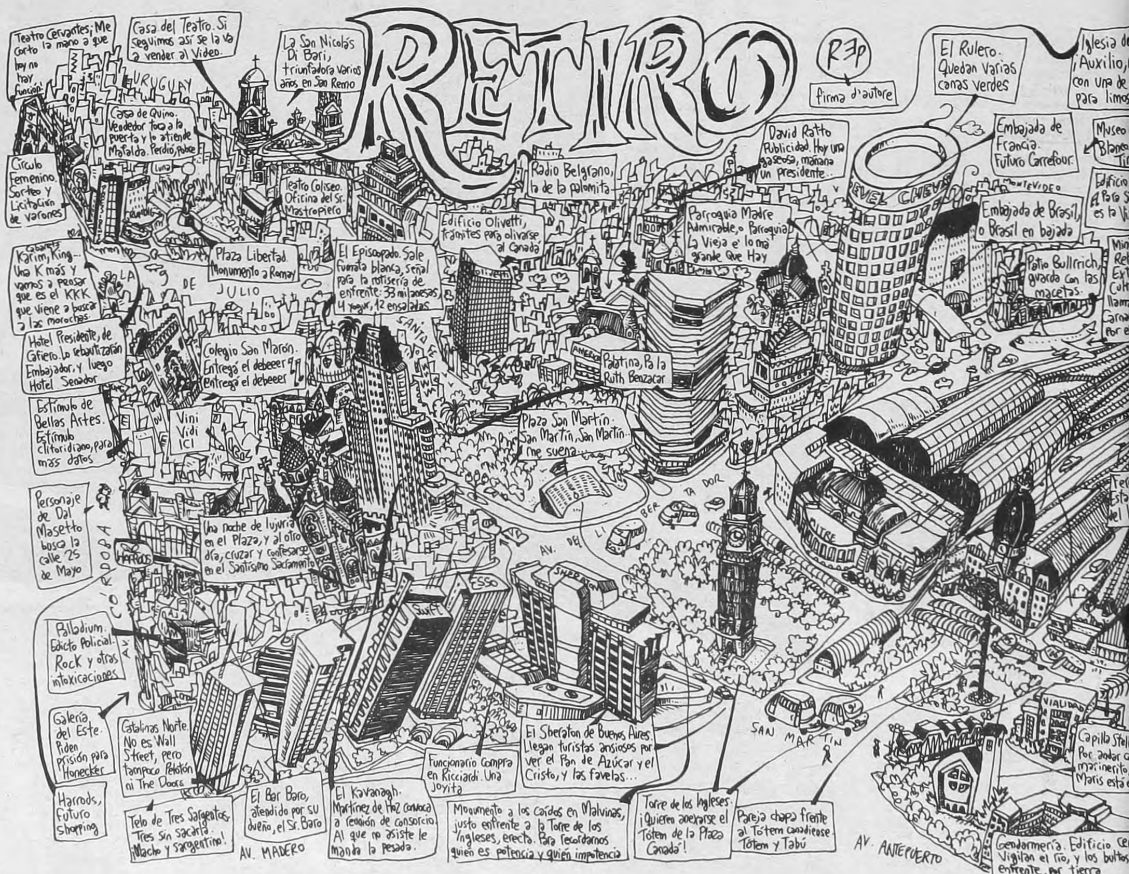 RETIRO
Teatro Cervantes; Me
corto la mano a que
hoy no
hay
función
Casa del Teatro. Si
seguimos así se la va
a vender al Video.
La San Nicolás
Di Bari,
triunfadora varios
años en San Remo
REP
firma d'autore
El Rulero.
Quedan varias
canas verdes
Iglesia de
¡Auxilio,
con una de
para limos
URUGUAY
Casa de Quino.
Vendedor toca a la
puerta y lo atiende
Mafalda. Perdió, pobre
Círculo
Femenino.
Sorteo y
Licitación
de varones
Teatro Coliseo.
Oficina del Sr.
Mastropiero
Radio Belgrano,
la de la palomita
David Ratto
Publicidad. Hoy una
gaseosa, mañana
un presidente...
Embajada de
Francia.
Futuro Carrefour.
Museo
Blanco
Edificio
es la
MONTEVIDEO
Embajada de Brasil,
o Brasil en bajada
Cabarets
Karim, King...
Una K más y
vamos a pensar
que es el KKK
que viene a buscar
a las morochas
Plaza Libertad.
Monumento a Romay
9 DE JULIO
El Episcopado. Sale
fumata blanca, señal
para la rotisería de
enfrente: 33 milanesas,
4 yogur, 12 ensaladas
Edificio Olivetti,
trámites para olivarse
al Canadá
Parroquia Madre
Admirable, o Parroquia
La Vieja e' lo má
grande que Hay
Patio Bullrich,
guarda con las
macetas
SANTA FE
Hotel Presidente, de
Cafiero. Lo rebautizarán
Embajador, y luego
Hotel Senador
Colegio San Marón.
Entrega el debeeer
entrega el debeeer
Palatina, Pa la
Ruth Benzacar
Estímulo de
Bellas Artes.
Estímulo
clitoridiano, para
más datos
Vini
Vcil
Plaza San Martín.
San Martín, San Martín...
me suena
Personaje
de Dal
Masetto
busca la
calle 25
de Mayo
Una noche de lujuria
en el Plaza, y al otro
día, cruzar y confesarse
en el Santísimo Sacramento
AV. DEL LIBERTADOR
MITRE
AV. CORDOBA
HARRODS
ESSO
SHERATON
Palladium.
Edicto Policial.
Rock y otras
intoxicaciones
Galería
del Este.
Piden
prisión para
Honecker
Catalinas Norte.
No es Wall
Street, pero
tampoco Pelotón
ni The Doors
Harrods,
Futuro
Shopping
Telo de Tres Sargentos.
Tres sin sacarla.
Macho y sargentino!
El Bar Baro,
atendido por su
dueño, el Sr. Baro
El Kavanagh.
Martínez de Hoz convoca
a reunión de consorcio.
Al que no asiste le
manda la pesada.
Funcionario compra
en Ricciardi. Una
joyita
El Sheraton de Buenos Aires.
Llegan turistas ansiosos por
ver el Pan de Azúcar y el
Cristo, y las favelas...
Monumento a los caídos en Malvinas,
justo enfrente a la Torre de los
Ingleses, erecta. Para recordarnos
quién es potencia y quién impotencia
Torre de los Ingleses.
¡Quieren anexarse el
Tótem de la Plaza
Canadá!
Pareja chapa frente
al Tótem canadiense.
Tótem y Tabú
SAN MARTIN
VIALIDAD
Capilla Stell
Por andar c
marinerito,
Maris está e
AV. MADERO
AV. ANTEPUERTO
Gendarmería. Edificio cen
Vigilan el río, y los bultos
enfrente, por tierra